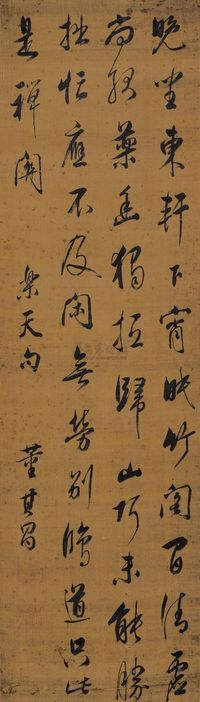 晚坐東軒下宵眠竹閣間清虛
當服藥幽獨抵歸山巧未能勝
拙忙應不及閒無勞別修道只此
是禪關 樂天句 董其昌